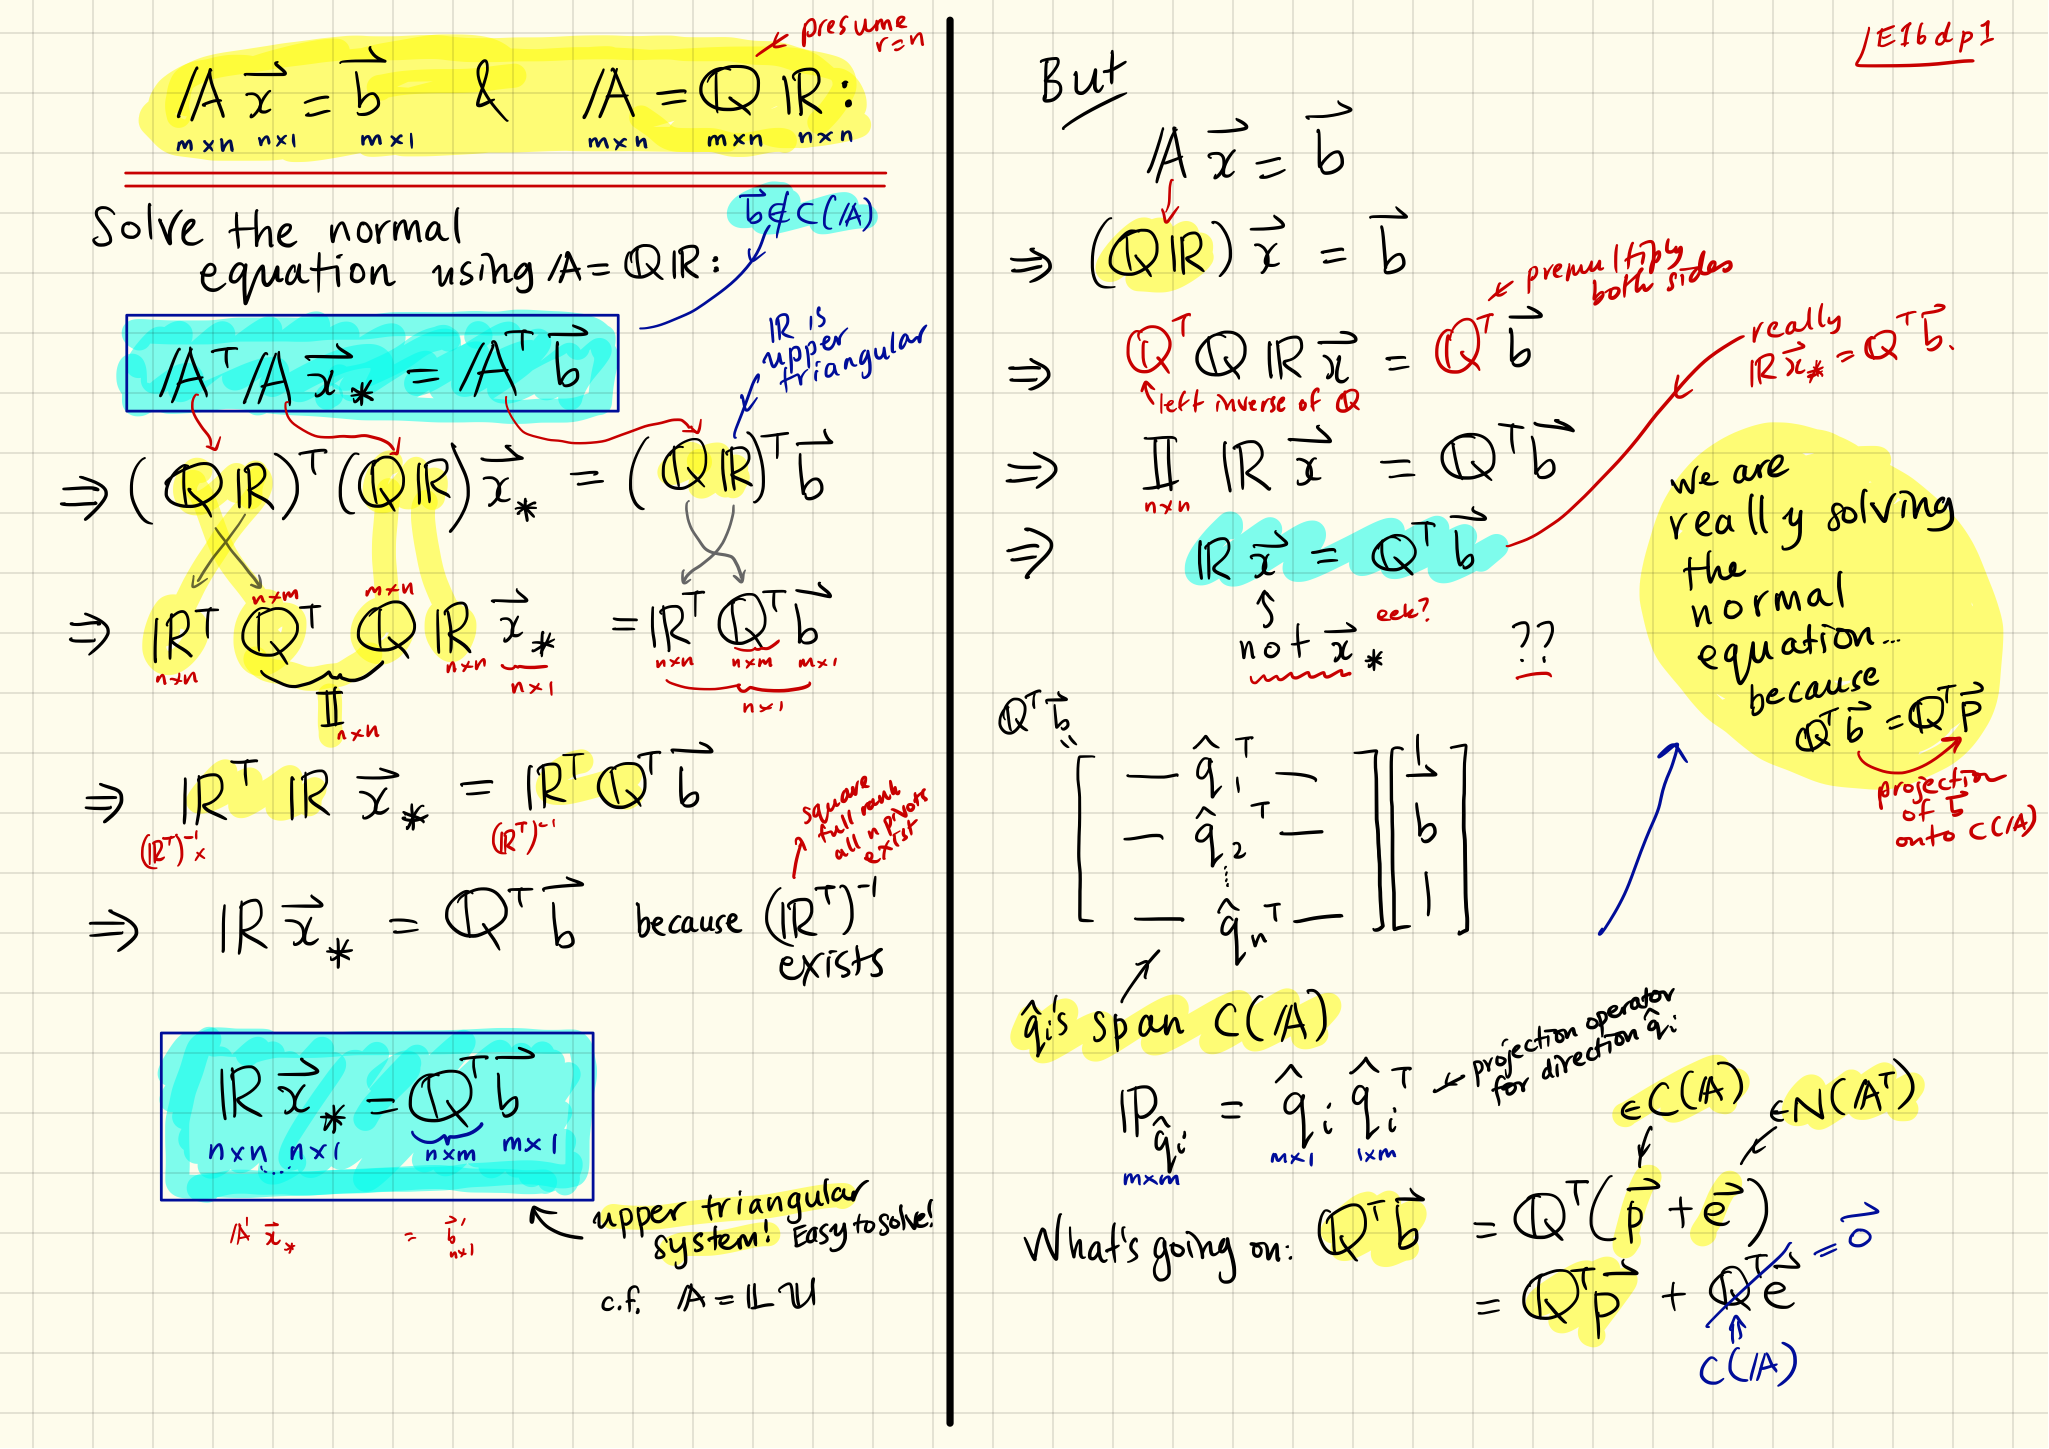 presume
r=n
𝔸 x⃗ = b⃗ & 𝔸 = ℚ ℝ :
m×n n×1 m×1 m×n m×n n×n
b⃗ ∉ C(𝔸)
Solve the normal
equation using 𝔸 = ℚℝ :
ℝ is
upper
triangular
𝔸ᵀ𝔸 x⃗_* = 𝔸ᵀ b⃗
⇒ (ℚℝ)ᵀ(ℚℝ) x⃗_* = (ℚℝ)ᵀ b⃗
n×m m×n
⇒ ℝᵀ ℚᵀ ℚ ℝ x⃗_* = ℝᵀ ℚᵀ b⃗
n×n n×n n×1 n×n n×m m×1
𝕀 n×n
n×1
⇒ ℝᵀ ℝ x⃗_* = ℝᵀ ℚᵀ b⃗
(ℝᵀ)⁻¹× (ℝᵀ)⁻¹
square
full rank
all n pivots
exist
⇒ ℝ x⃗_* = ℚᵀ b⃗ because (ℝᵀ)⁻¹
exists
ℝ x⃗_* = ℚᵀ b⃗
n×n n×1 n×m m×1
𝔸' x⃗_* = b⃗'
n×1
upper triangular
system! Easy to solve!
c.f. 𝔸 = 𝕃𝕌
E16dp1
But
𝔸 x⃗ = b⃗
⇒ (ℚℝ) x⃗ = b⃗
premultiply
both sides
⇒ ℚᵀ ℚ ℝ x⃗ = ℚᵀ b⃗
left inverse of ℚ
really
ℝ x⃗_* = ℚᵀ b⃗.
⇒ 𝕀 ℝ x⃗ = ℚᵀ b⃗
n×n
⇒ ℝ x⃗ = ℚᵀ b⃗
eek?
not x⃗_* ??
we are
really solving
the
normal
equation...
because
ℚᵀ b⃗ = ℚᵀ p⃗
projection
of b⃗
onto C(𝔸)
ℚᵀ b⃗
"
[ — q̂₁ᵀ — ] [ | ]
[ — q̂₂ᵀ — ] [ b⃗ ]
⋮
[ — q̂ₙᵀ — ] [ | ]
q̂ᵢ's span C(𝔸)
projection operator
for direction q̂ᵢ
ℙ_q̂ᵢ = q̂ᵢ q̂ᵢᵀ
m×m m×1 1×m
∈ C(𝔸) ∈ N(𝔸ᵀ)
What's going on: ℚᵀ b⃗ = ℚᵀ ( p⃗ + e⃗ )
= ℚᵀ p⃗ + ℚᵀ e⃗ = 0⃗
C(𝔸)